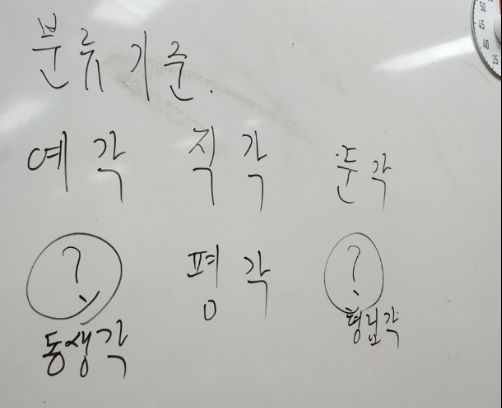 분류 기준.
예각 직각 둔각
? 평각 ?
동생각 형님각
50
45
40
35